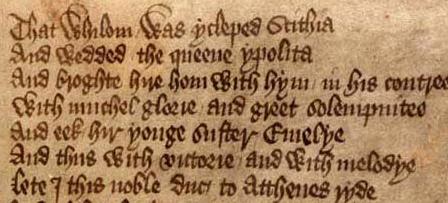 That whilom was ycleped Scithia
And wedded the queene ypolita
And broghte hire hom with hym in his contree
With muchel glorie and greet solempnitee
And eek hir yonge suster Emelye
And thus with victorie and with melodye
lete I this noble duc to Atthenes ryde